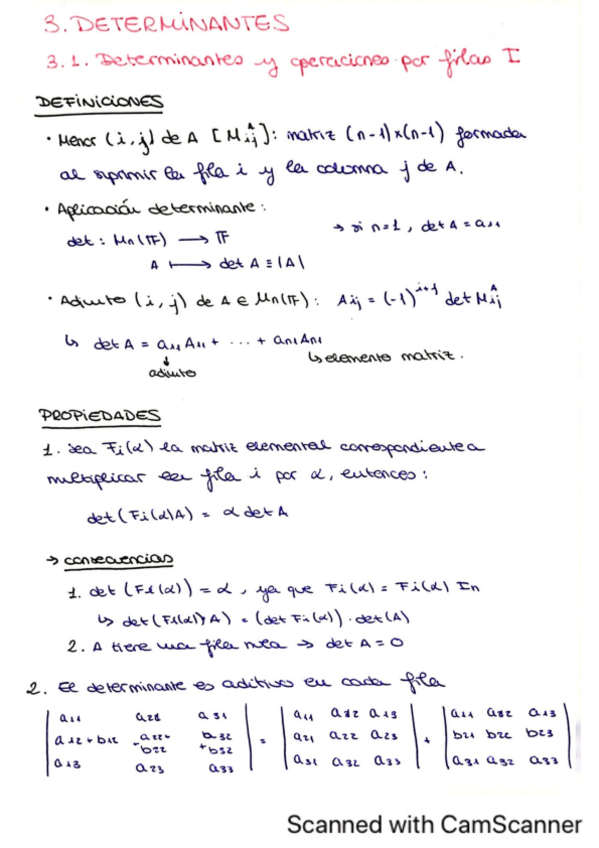 3. DETERMINANTES
3.1. Determinantes y operaciones por filas I
DEFINICIONES
· Menor (i,j) de A [M^A_ij]: matriz (n-1)x(n-1) formada
al suprimir la fila i y la columna j de A.
· Aplicación determinante:
det: Mn(F) → F → si n=1, det A = a11
A ↦ det A ≡ |A|
· Adjunto (i,j) de A ∈ Mn(F): Aij = (-1)^i+j det M^A_ij
↳ det A = a11 A11 + ... + an1 An1
↓ adjunto ↳ elemento matriz.
PROPIEDADES
1. Sea Fi(α) la matriz elemental correspondiente a
multiplicar la fila i por α, entonces:
det(Fi(α)A) = α det A
→ consecuencias
1. det (Fi(α)) = α, ya que Fi(α) = Fi(α) In
↳ det(Fi(α)A) = (det Fi(α)) · det(A)
2. A tiene una fila nula → det A = 0
2. El determinante es aditivo en cada fila
| a11 a21 a31 | | a11 a12 a13 | | a11 a12 a13 |
| a12+b12 a22+b22 a32+b32 | = | a21 a22 a23 | + | b21 b22 b23 |
| a13 a23 a33 | | a31 a32 a33 | | a31 a32 a33 |
Scanned with CamScanner